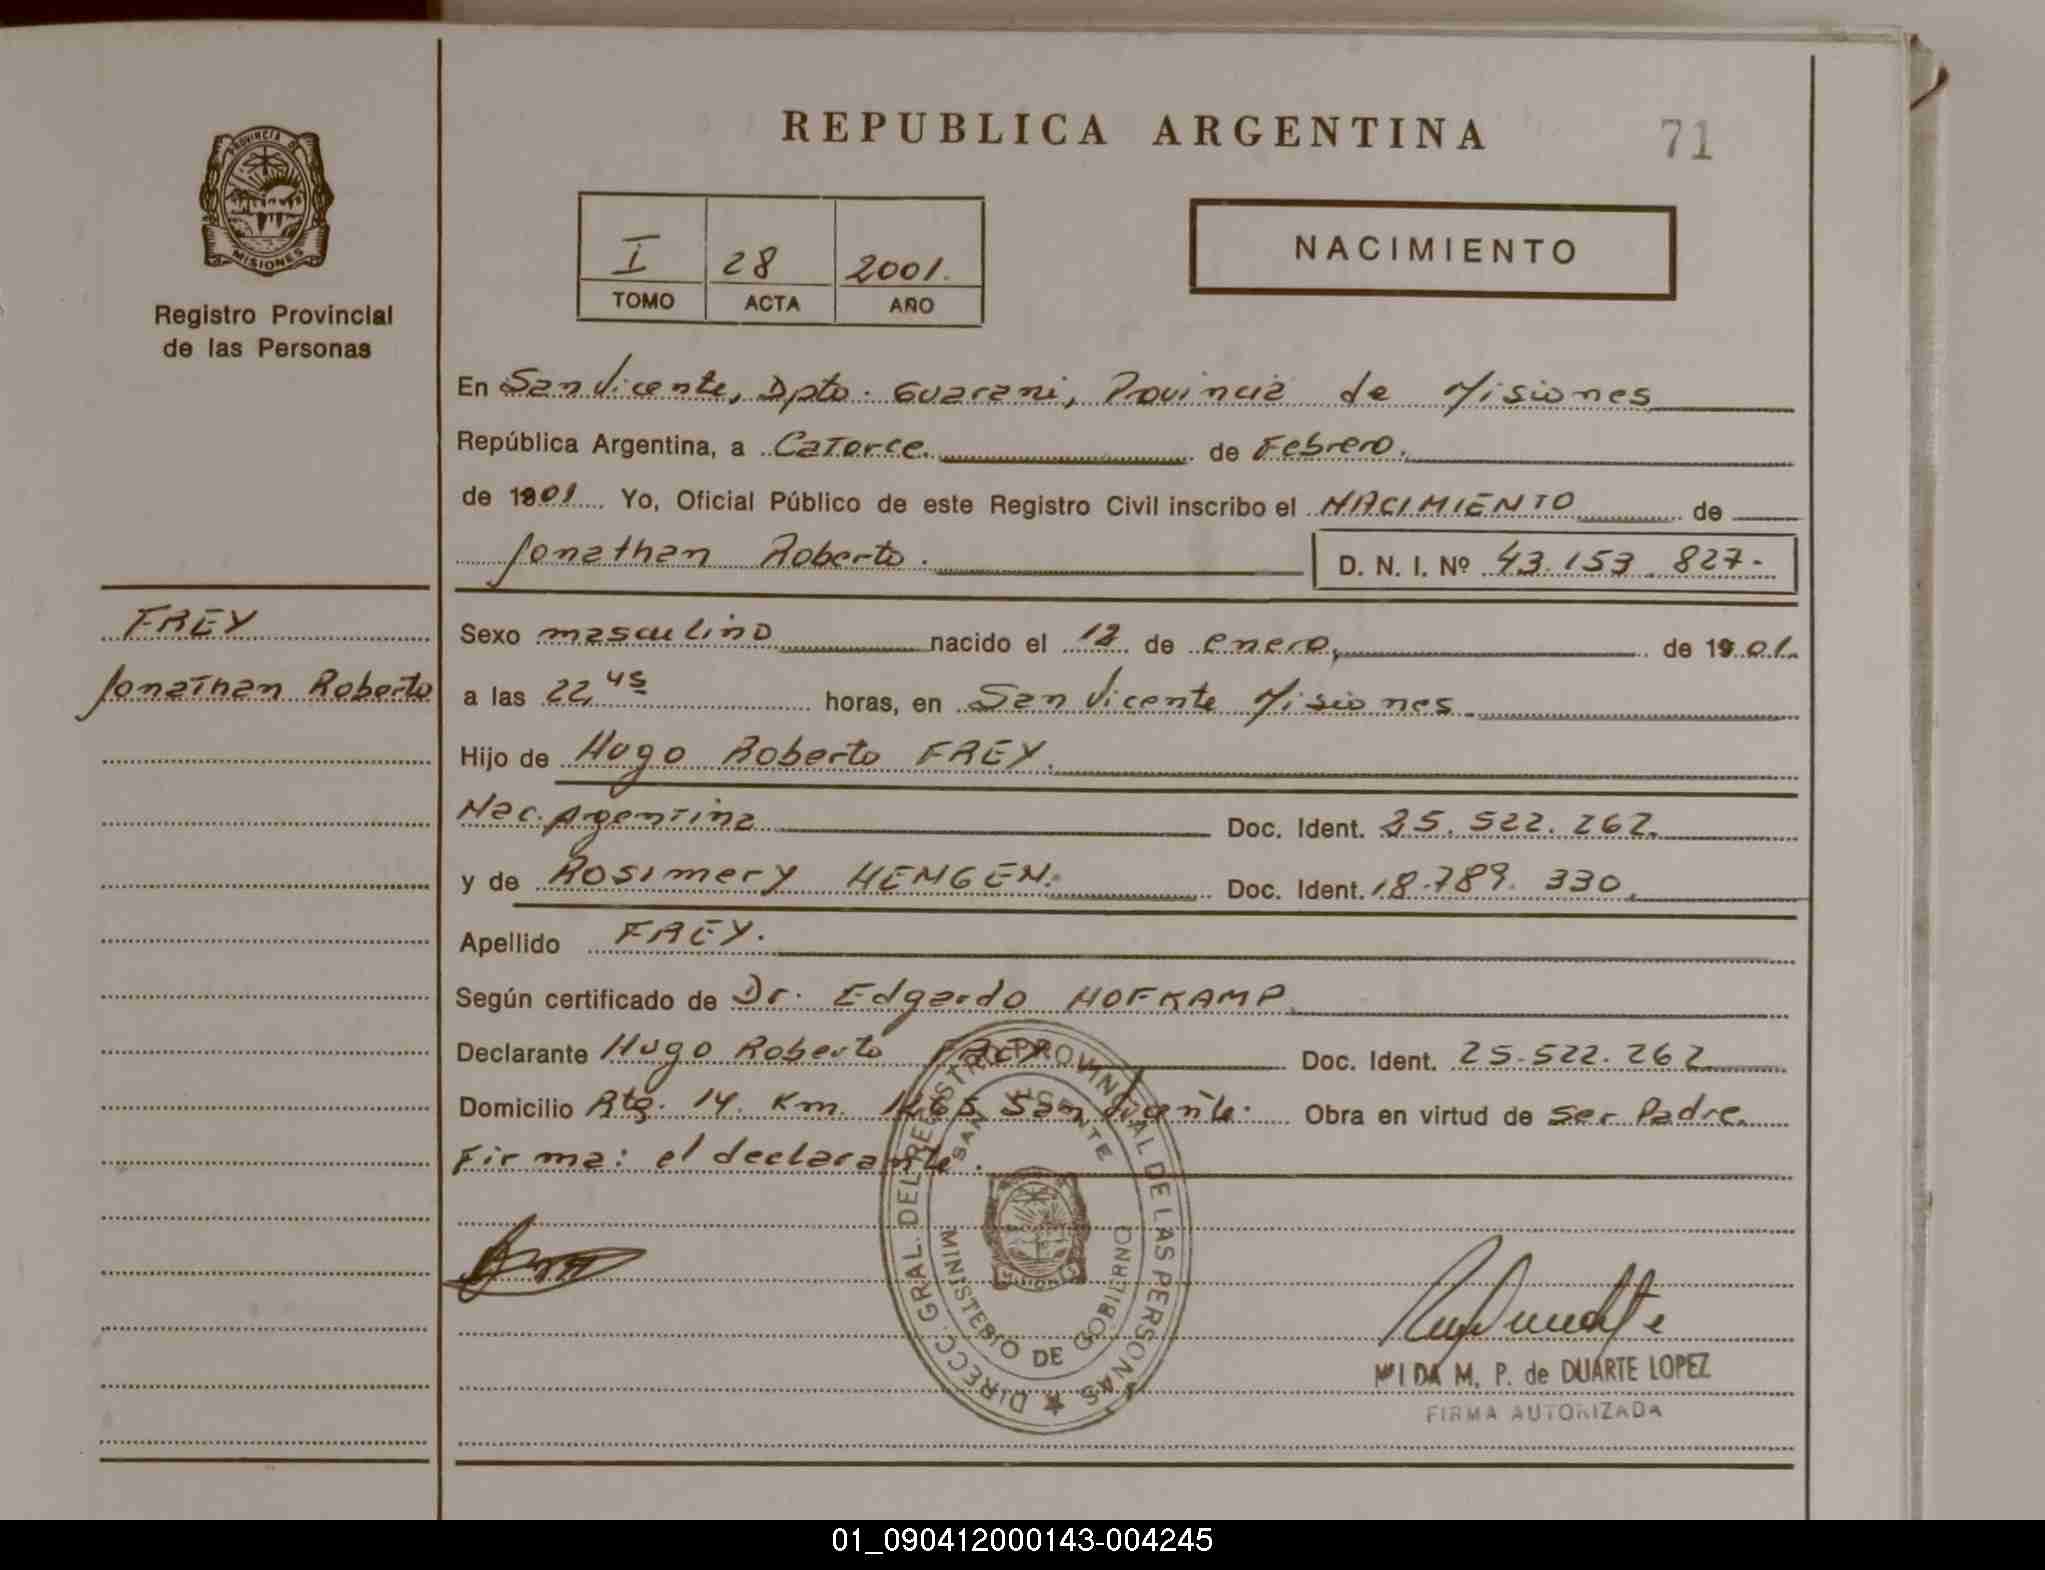 REPUBLICA ARGENTINA
71
PROVINCIA DE
MISIONES
Registro Provincial
de las Personas
I 28 2001.
TOMO ACTA AÑO
NACIMIENTO
En San Vicente, Dpto. Guarani, Provincia de Misiones
República Argentina, a Catorce. de Febrero.
de 1901 Yo, Oficial Público de este Registro Civil inscribo el NACIMIENTO de
Jonathan Roberto. D. N. I. Nº 43.153.827-
FREY
Jonathan Roberto
Sexo masculino nacido el de enero, de 1901.
a las 22,45 horas, en San Vicente Misiones.
Hijo de Hugo Roberto FREY.
Nac. Argentina Doc. Ident. 25.522.262.
y de Rosimery HENGEN. Doc. Ident. 18.789.330.
Apellido FREY.
Según certificado de Dr. Edgardo HOFKAMP.
Declarante Hugo Roberto FREY Doc. Ident. 25.522.262
Domicilio Rta. 14. Km. 1265 San Vicente. Obra en virtud de ser Padre.
Firma: el declarante.
DIRECC. GRAL. DEL REGISTRO PROVINCIAL DE LAS PERSONAS
SAN VICENTE
MINISTERIO DE GOBIERNO
M. P. de DUARTE LOPEZ
FIRMA AUTORIZADA
01_090412000143-004245